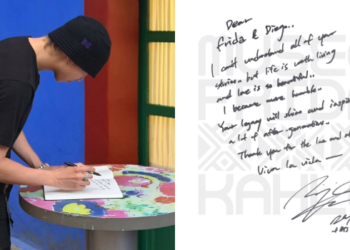 Dear
Frida & Diego..
I can't understand all of your
stories. but life is worth living
and love is so beautiful..
I became more humble..
Your legacy will shine and inspire
a lot of after generations..
Thank you for the love and
Viva la vida —
MUSEO
FRIDA
KAHLO